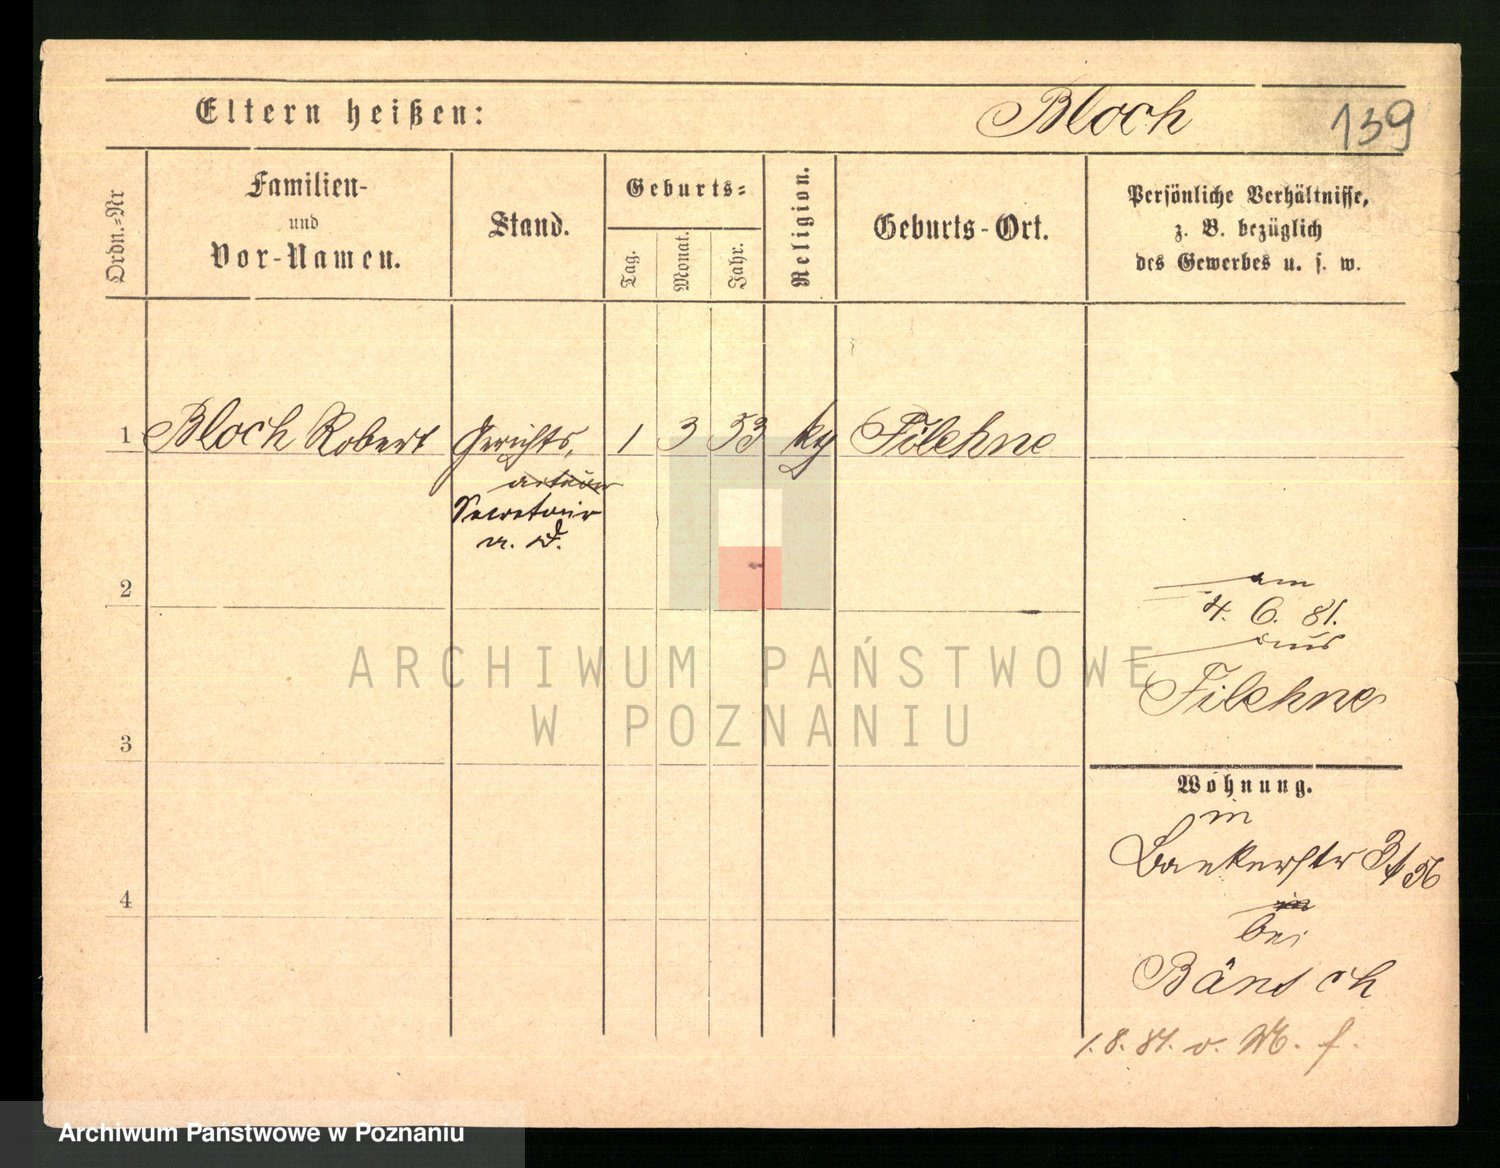 Eltern heißen:
Bloch
139
Ordn.-Nr
Familien-
und
Vor-Namen.
Stand.
Geburts=
Tag.
Monat.
Jahr.
Religion.
Geburts-Ort.
Persönliche Verhältnisse,
z. B. bezüglich
des Gewerbes u. s. w.
1 Bloch Robert Gerichts, 1 3 53 kg Filehne
Secretair
a. D.
2
am
4. 6. 81.
aus
Filehne
3
Wohnung.
in
Baekerstr
bei
Bänsch
4
1. 8. 81. v. M. f.
ARCHIWUM PAŃSTWOWE
W POZNANIU
Archiwum Państwowe w Poznaniu